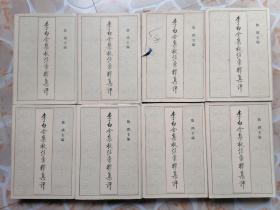 李白全集校注彙釋集評
詹鍈主編
李白全集校注彙釋集評
詹鍈主編
李白全集校注彙釋集評
詹鍈主編
李白全集校注彙釋集評
詹鍈主編
李白全集校注彙釋集評
詹鍈主編
李白全集校注彙釋集評
詹鍈主編
李白全集校注彙釋集評
詹鍈主編
李白全集校注彙釋集評
詹鍈主編